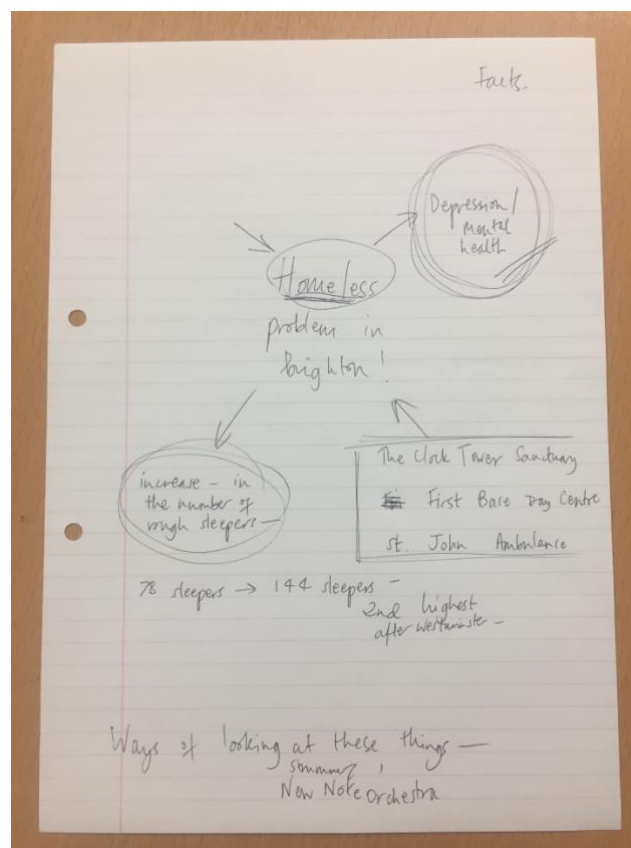 Facts.
Depression/
Mental
health
Homeless
problem in
brighton!
increase - in
the number of
rough sleepers -
The Clock Tower Sanctuary
First Base Day Centre
St. John Ambulance
78 sleepers → 144 sleepers -
2nd highest
after westminster -
Ways of looking at these things -
New Note Orchestra